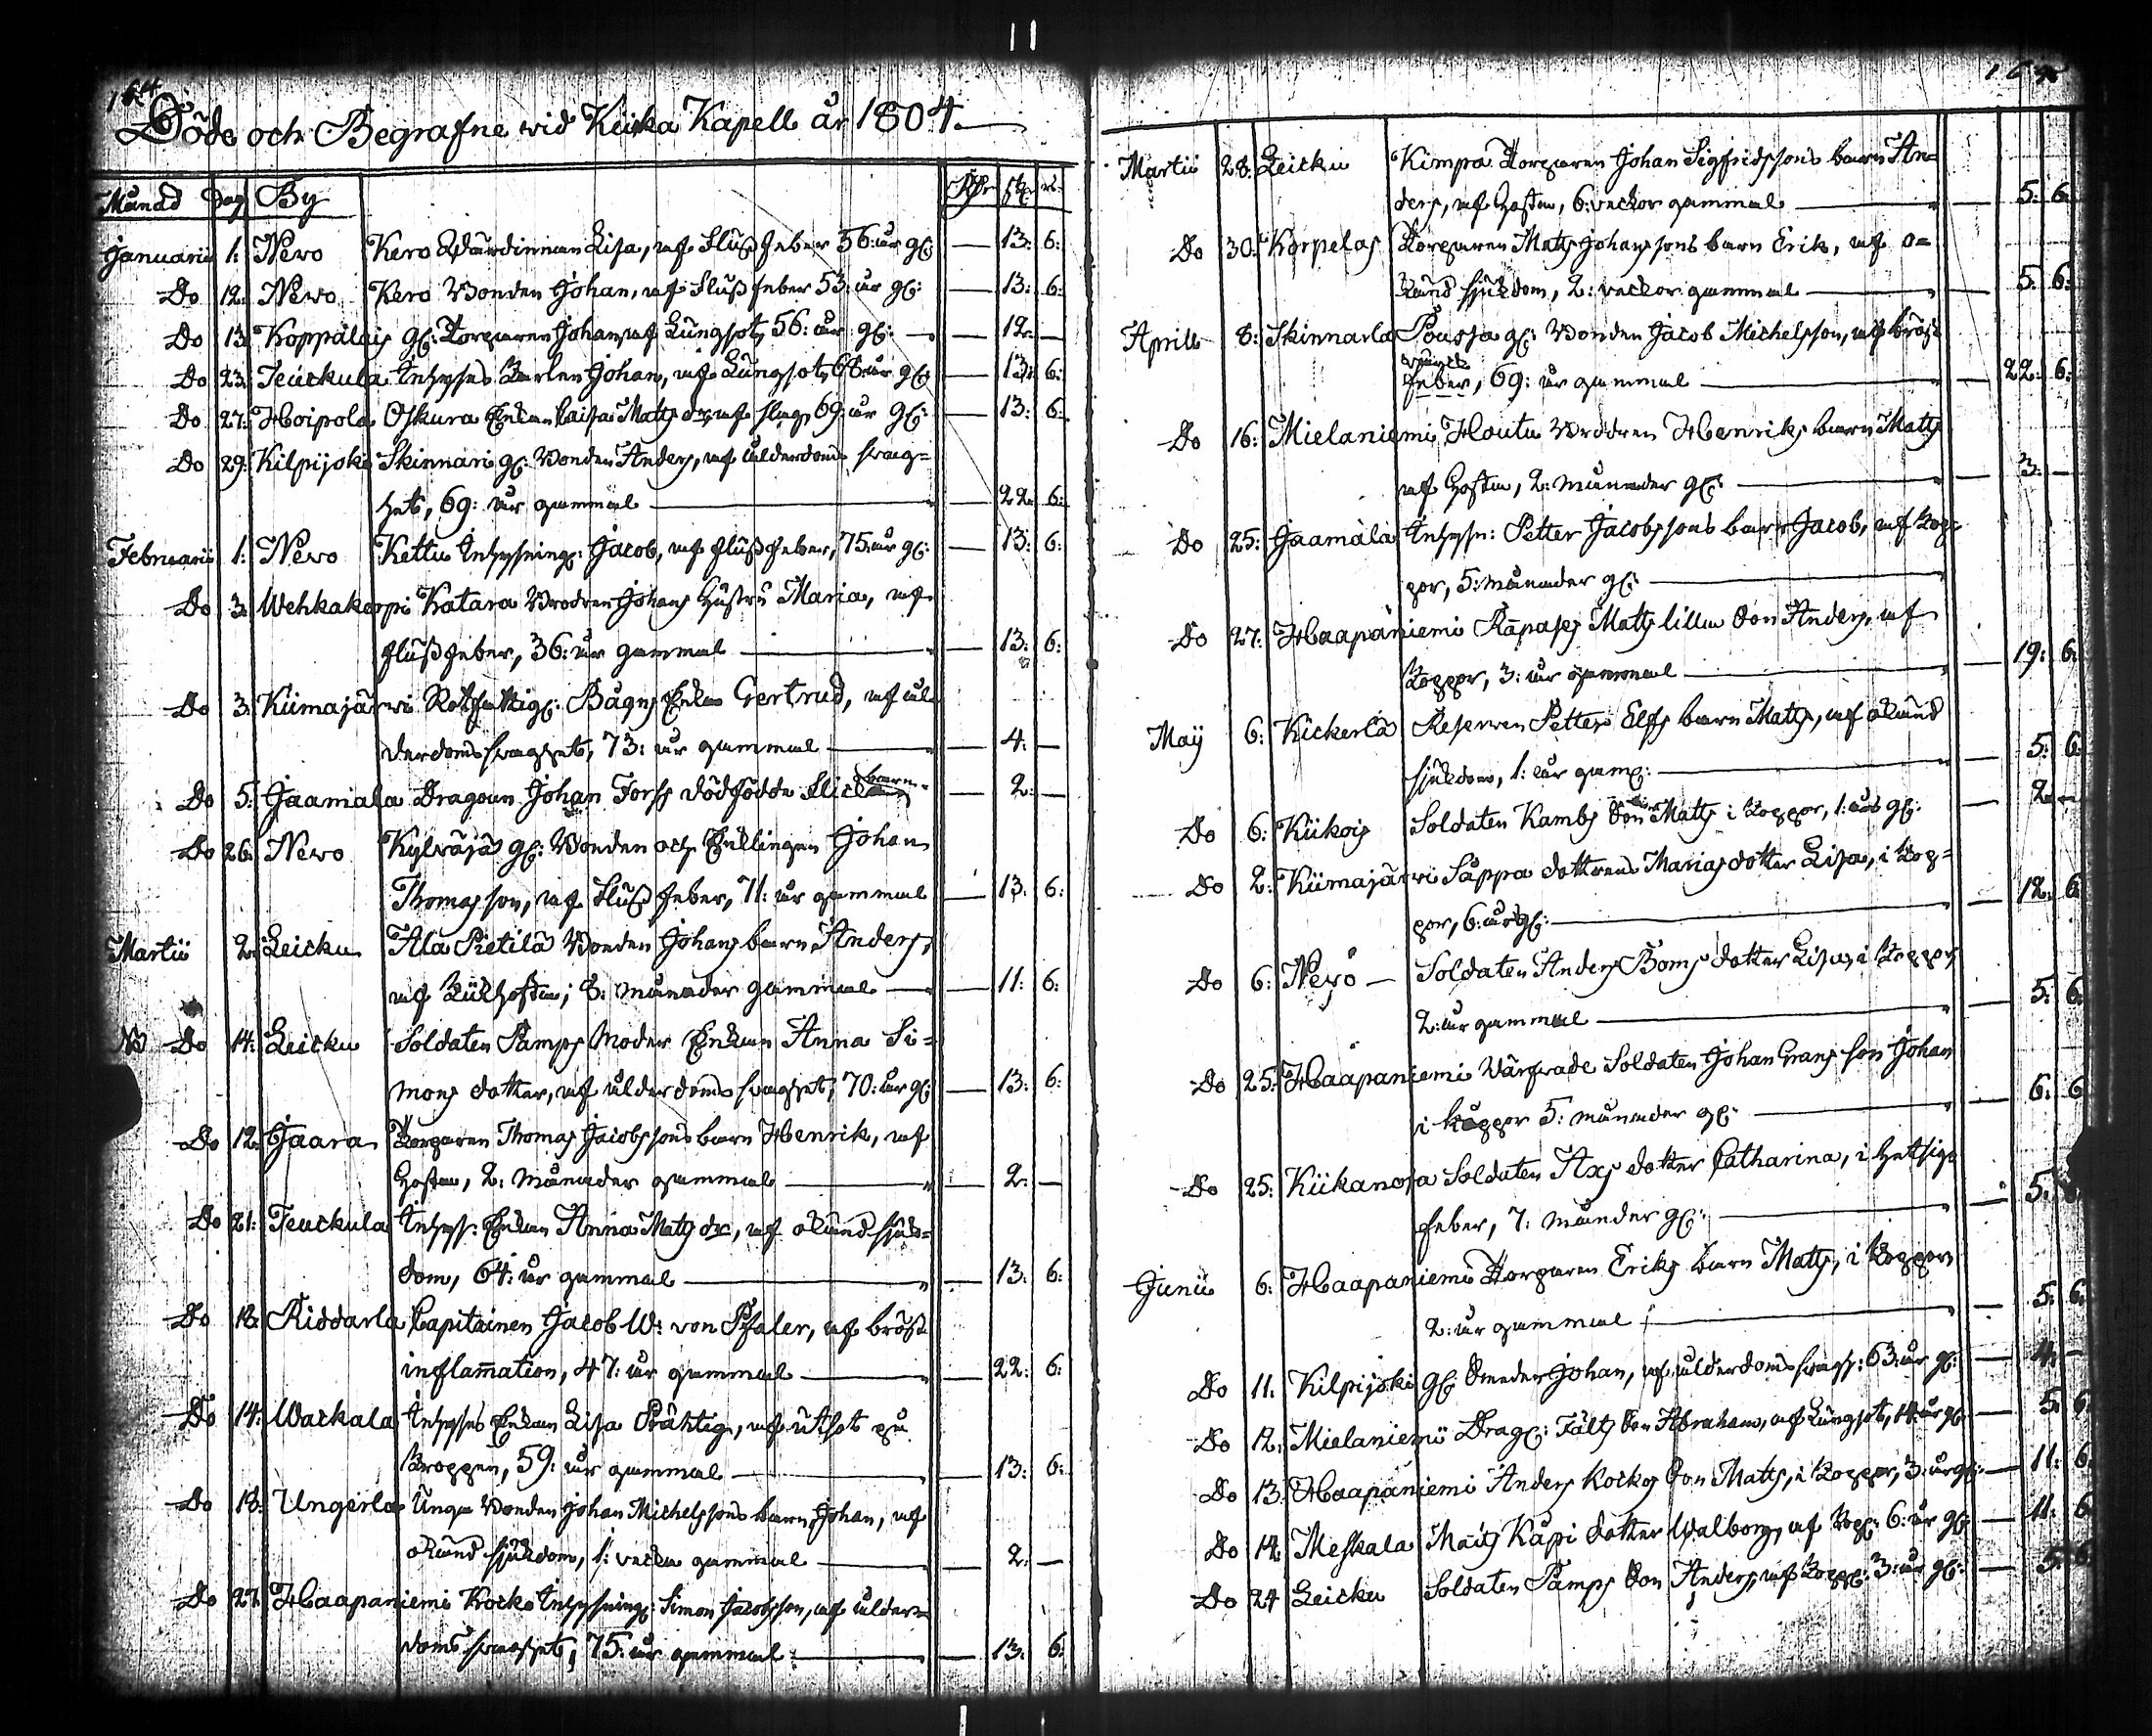 164
Döde och Begrafne wid Kiika Kapell år 1804.
Månad Dag By Rdr sk. r.
Januarii 1: Nevo Kero Wärdinnan Lisa, af Flußfeber 56: år gl: 13: 6:
Do 12: Nevo Kero Bonden Johan, af Flußfeber 53: år gl: 13: 6:
Do 13. Koppalais gl: Torparen Johan, af Lungsot, 56: år gl: 12.
Do 23. Teuckula Inhyses Karlen Johan, af Lungsot, 68 år gl: 13: 6:
Do 27: Hoipola Oskura Enkan Caisa Matts dr, af slag, 69: år gl: 13: 6:
Do 29: Kilpijoki Skinnari gl: Bonden Anders, af ålderdoms svag=
het, 69: år gammal 22. 6:
Februarii 1: Nevo Kettu Inhysning: Jacob, af Flußfeber, 75: år gl: 13: 6:
Do 3. Wehkakorpi Katara Brodren Johans Hustru Maria, af
Flußfeber, 36: år gammal 13: 6:
Do 3: Kiimajärwi Rotfattig: Bågs Enka Gertrud, af ål-
derdoms svaghet, 73: år gammal 4.
Do 5: Jaamala Dragoun Johan Forss dödfödde Flicke barn 2.
Do 26: Nevo Kylväjä gl: Bonden och Enklingen Johan
Thomasson, af Flußfeber, 71: år gammal 13. 6:
Martii 2: Leicku Ala Pietilä Bonden Johans barn Anders,
af Kikhosta, 8: månader gammal 11: 6:
NB Do 14: Leicku Soldaten Pamps Moder Enkan Anna Si=
mons dotter, af ålderdoms svaghet, 70: år gl: 13: 6:
Do 12: Jaara Torparen Thomas Jacobssons barn Henrik, af
Hosta, 2: månader gammal 2.
Do 21: Teuckula Inhys: Enkan Anna Matts dr, af okänd sjuk=
dom, 64: år gammal 13: 6:
Do 18: Riddarla Capitainen Jacob W: von Pfaler, af bröst
inflam̄ation, 47: år gammal 22: 6:
Do 14: Warkala Inhyses Enkan Lisa Präktig, af Utslet på
Kroppen, 59: år gammal 13: 6:
Do 18: Ungerla Unga Bonden Johan Michelssons barn Johan, af
okänd sjukdom, 1: vecka gammal 2.
Do 27. Haapaniemi Kocko Inhysning: Simon Jacobsson, af ålder=
doms svaghet, 75: år gammal 13: 6:
Martii 28: Leicku Kimpa Torparen Johan Sigfridssons barn An=
ders, af Hosta, 6: veckor gammal 5: 6:
Do 30: Korpelas Torparen Matts Johanssons barn Erik, af o=
känd sjukdom, 2: veckor gammal 5: 6:
Aprill 8: Skinnarla Pousja gl: Bonden Jacob Michelsson, af bröst
feber, 69: år gammal 22: 6:
Do 16: Mielaniemi Houtu Brodren Henriks barn Matts
af Hosta, 2: månader gl: 3:
Do 25: Jaamala Inhys: Petter Jacobssons barn Jacob, af Kop-
por, 5: månader gl:
Do 27: Haapaniemi Rapases Matts lilla Son Anders, af
Koppor, 3: år gammal 19: 6:
Maij 6: Kickerlä Reserven Petter Elfs barn Matts, af okänd
sjukdom, 1: år gam: 5: 6:
Do 6: Kiikois Soldaten Kambs Son Matts i Koppor, 1: års gl: 2.
Do 2: Kiimajärwi Sappa dottrens Marias dotter Lisa, i Kop=
por, 6: år gl: 12: 6:
Do 6: Nevo Soldaten Anders Boms dotter Lisa, i Koppor,
2: år gammal 5: 6:
Do 25: Haapaniemi Värfvade Soldaten Johan Grans son Johan
i koppor 5: månader gl: 6: 6
Do 25: Kiikanoja Soldaten Axs dotter Catharina, i Hetsige
feber, 7: månder gl: 5:
Junii 6: Haapaniemi Torparen Eriks barn Matts, i Koppor,
2: år gammal 5: 6:
Do 11: Kilpijoki gl: Smeden Johan, af ålderdoms svagh: 63: år gl: 4.
Do 12: Mielaniemi Drag: Fälts Son Abraham, af Lungsot, 14: år gl: 5: 6:
Do 13: Haapaniemi Anders Kockos Son Matts, i Koppor, 3: år gl: 11: 6:
Do 14. Meskala Matts Kapi dotter Walborg, af Kop: 6: år gl: 11: 6
Do 24 Leicku Soldaten Pamps Son Anders, af Kopp: 3: år gl: 5: 6